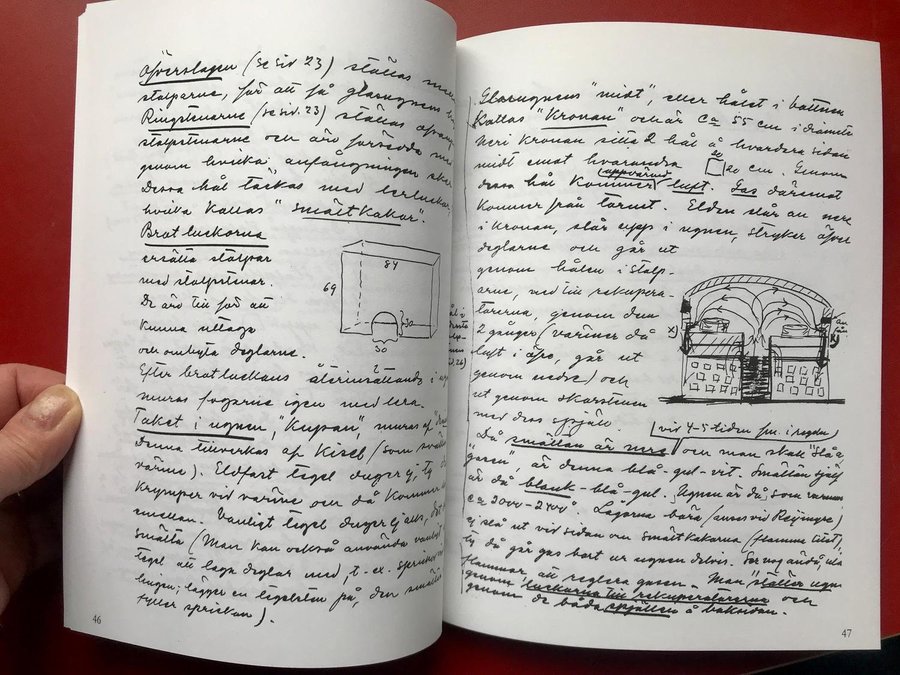 Överslagen (se sid. 23) ställas mellan
stolparne, för att få glasugnens
Ringstenarne (se sid. 23) ställas ofvanpå
stolpstenarne och äro försedda med
genom hvilka anfångningen sker.
Dessa hål täckas med lerluckor,
hvilka kallas "smältkakor".
Bratluckorna
ersätta stolpar
med stolpstenar.
De äro till för att
kunna uttaga
och ombyta deglarne.
84
69
30
30
2
Efter bratluckans återinsättande i
muras fogarne igen med lera.
Taket i ugnen, "Kupan", muras af
Denna tillverkas af Kisel (som sväller
värme). Eldfast tegel duger ej, ty
krymper vid värme och då kommer
emellan. Vanligt tegel duger ej alls, det
smälta (Man kan också använda vanligt
tegel att laga deglar med, t-ex. sprickor
lägger en tegelsten på, den smälter
fyller sprickan).
46
Glasugnens "midt", eller hålet i bottnen
kallas "Kronan" och är ca 55 cm i diameter
Neri Kronan sitta 2 hål å hvardera sidan
midt emot hvarandra 20 20 cm. Genom
dessa hål kommer uppvärmd luft. Gas däremot
kommer från tornet. Elden slår an nere
i Kronan, slår upp i ugnen, stryker öfver
deglarne och går ut
genom hålen i stolp-
arne, ned till rekupera-
torerna, genom dem
2 gånger (värmer då
luft i öfre, går ut
genom nedre) och
ut genom skorstenen
med dess spjäll.
x)
vid 4-5 tiden fm. i regeln
Då smältan är nere och man skall "slå a
gasen", är denna blå-gul-vit. Smältan själf
är då blank-blå-gul. Ugnen är då, som varmast
ca 2000-2400°. Lågorna böra
ej slå ut vid sidan om smältkakorna
ty då går gas bort ur ugnen delvis.
flammar att reglera gasen. Man ställer ugnen
genom luckorna till rekuperatorerna och
genom de båda spjällen å baksidan.
47